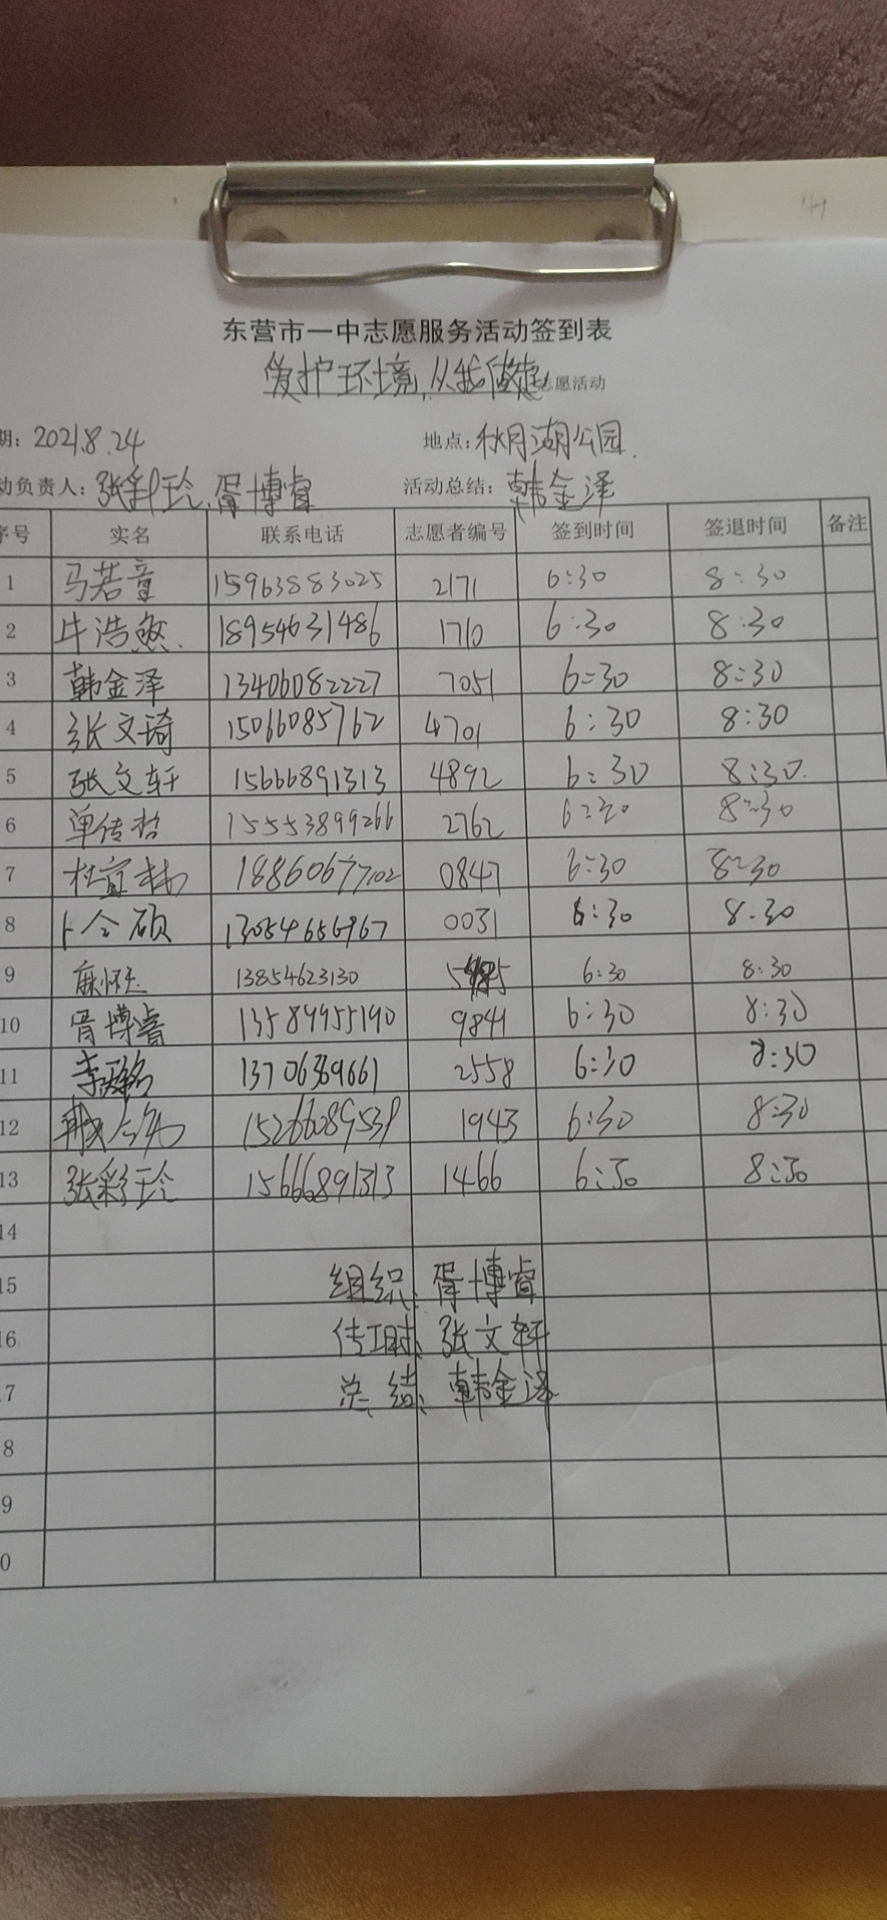 东营市一中志愿服务活动签到表
爱护环境,从我做起 志愿活动
期: 2021.8.24 地点: 秋月湖公园.
动负责人: 张彩玲、胥博睿 活动总结: 韩金泽
序号 实名 联系电话 志愿者编号 签到时间 签退时间 备注
1 马若童 15963883025 2171 6:30 8:30
2 牛浩然. 18954631486 1710 6:30 8:30
3 韩金泽 13406082227 7051 6:30 8:30
4 张文琦 15066085762 4701 6:30 8:30
5 张文轩 15666891313 4892 6:30 8:30.
6 单传哲 15553899266 2762 6:30 8:30
7 杜宜 18860677102 0847 6:30 8:30
8 卜令硕 13054656967 0031 6:30 8:30
9 麻怀 13854623130 6:30 8:30
10 胥博睿 13589955190 9841 6:30 8:30
11 李 13706369661 2558 6:30 8:30
12 15266089539 1943 6:30 8:30
13 张彩玲 15666891313 1466 6:30 8:30
14
15 组织: 胥博睿
16 传工时: 张文轩
7 总结: 韩金泽
8
9
0